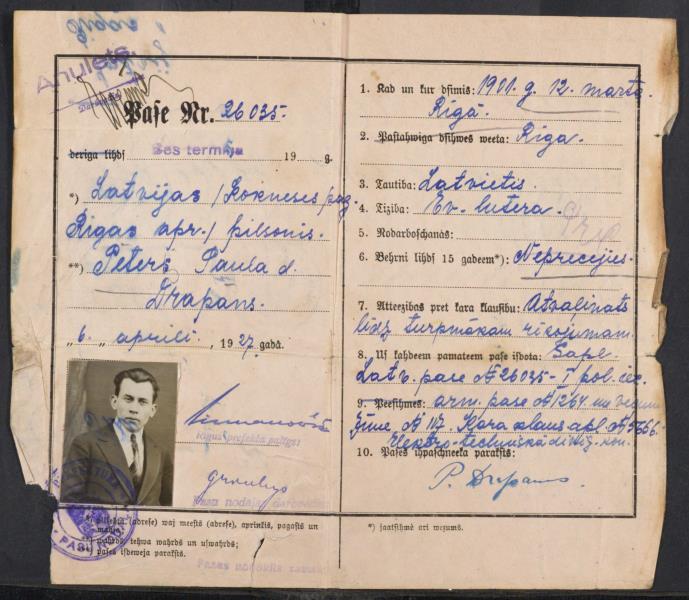 Anulēts.
Pase Nr. 26035.
deriga lihdſ Bes termiņa 19 g.
*) Latvijas / Kokneses pag.
Rīgas apr. / pilsonis.
**) Pēters Paula d.
Drapāns.
"6." aprīlī. 1927. gadā.
Rīgas prefekta palīgs:
Pasu nodaļas
*) (adrese) waj meeſts (adrese), aprinkis, pagaſts un
**) wahrds, tehwa wahrds un uſwahrds;
paſes iſdeweja parakſts.
1. Kad un kur dſimis: 1901. g. 12. martā.
Rīgā.
2. Paſtahwiga dſihwes weeta: Rīga.
3. Tautiba: Latvietis.
4. Tiziba: Ev. lutera.
5. Nodarboſchanās:
6. Behrni lihdſ 15 gadeem*): Neprecējies.
7. Atteezibas pret kara klauſibu: Atvaļināts
līdz turpmākam rīkojumam.
8. Uſ kahdeem pamateem paſe iſdota: Sapl.
Latv. pase № 26035 - I pol. iec.
9. Peeſihmes: arm. pase № 1264 un
zīme, № 117. Kara klaus. apl. №
Elektro-techniskā diviz. kom.
10. Paſes ihpaſchneeka parakſts:
P. Drapans
*) jaatſihmē ari wezums.